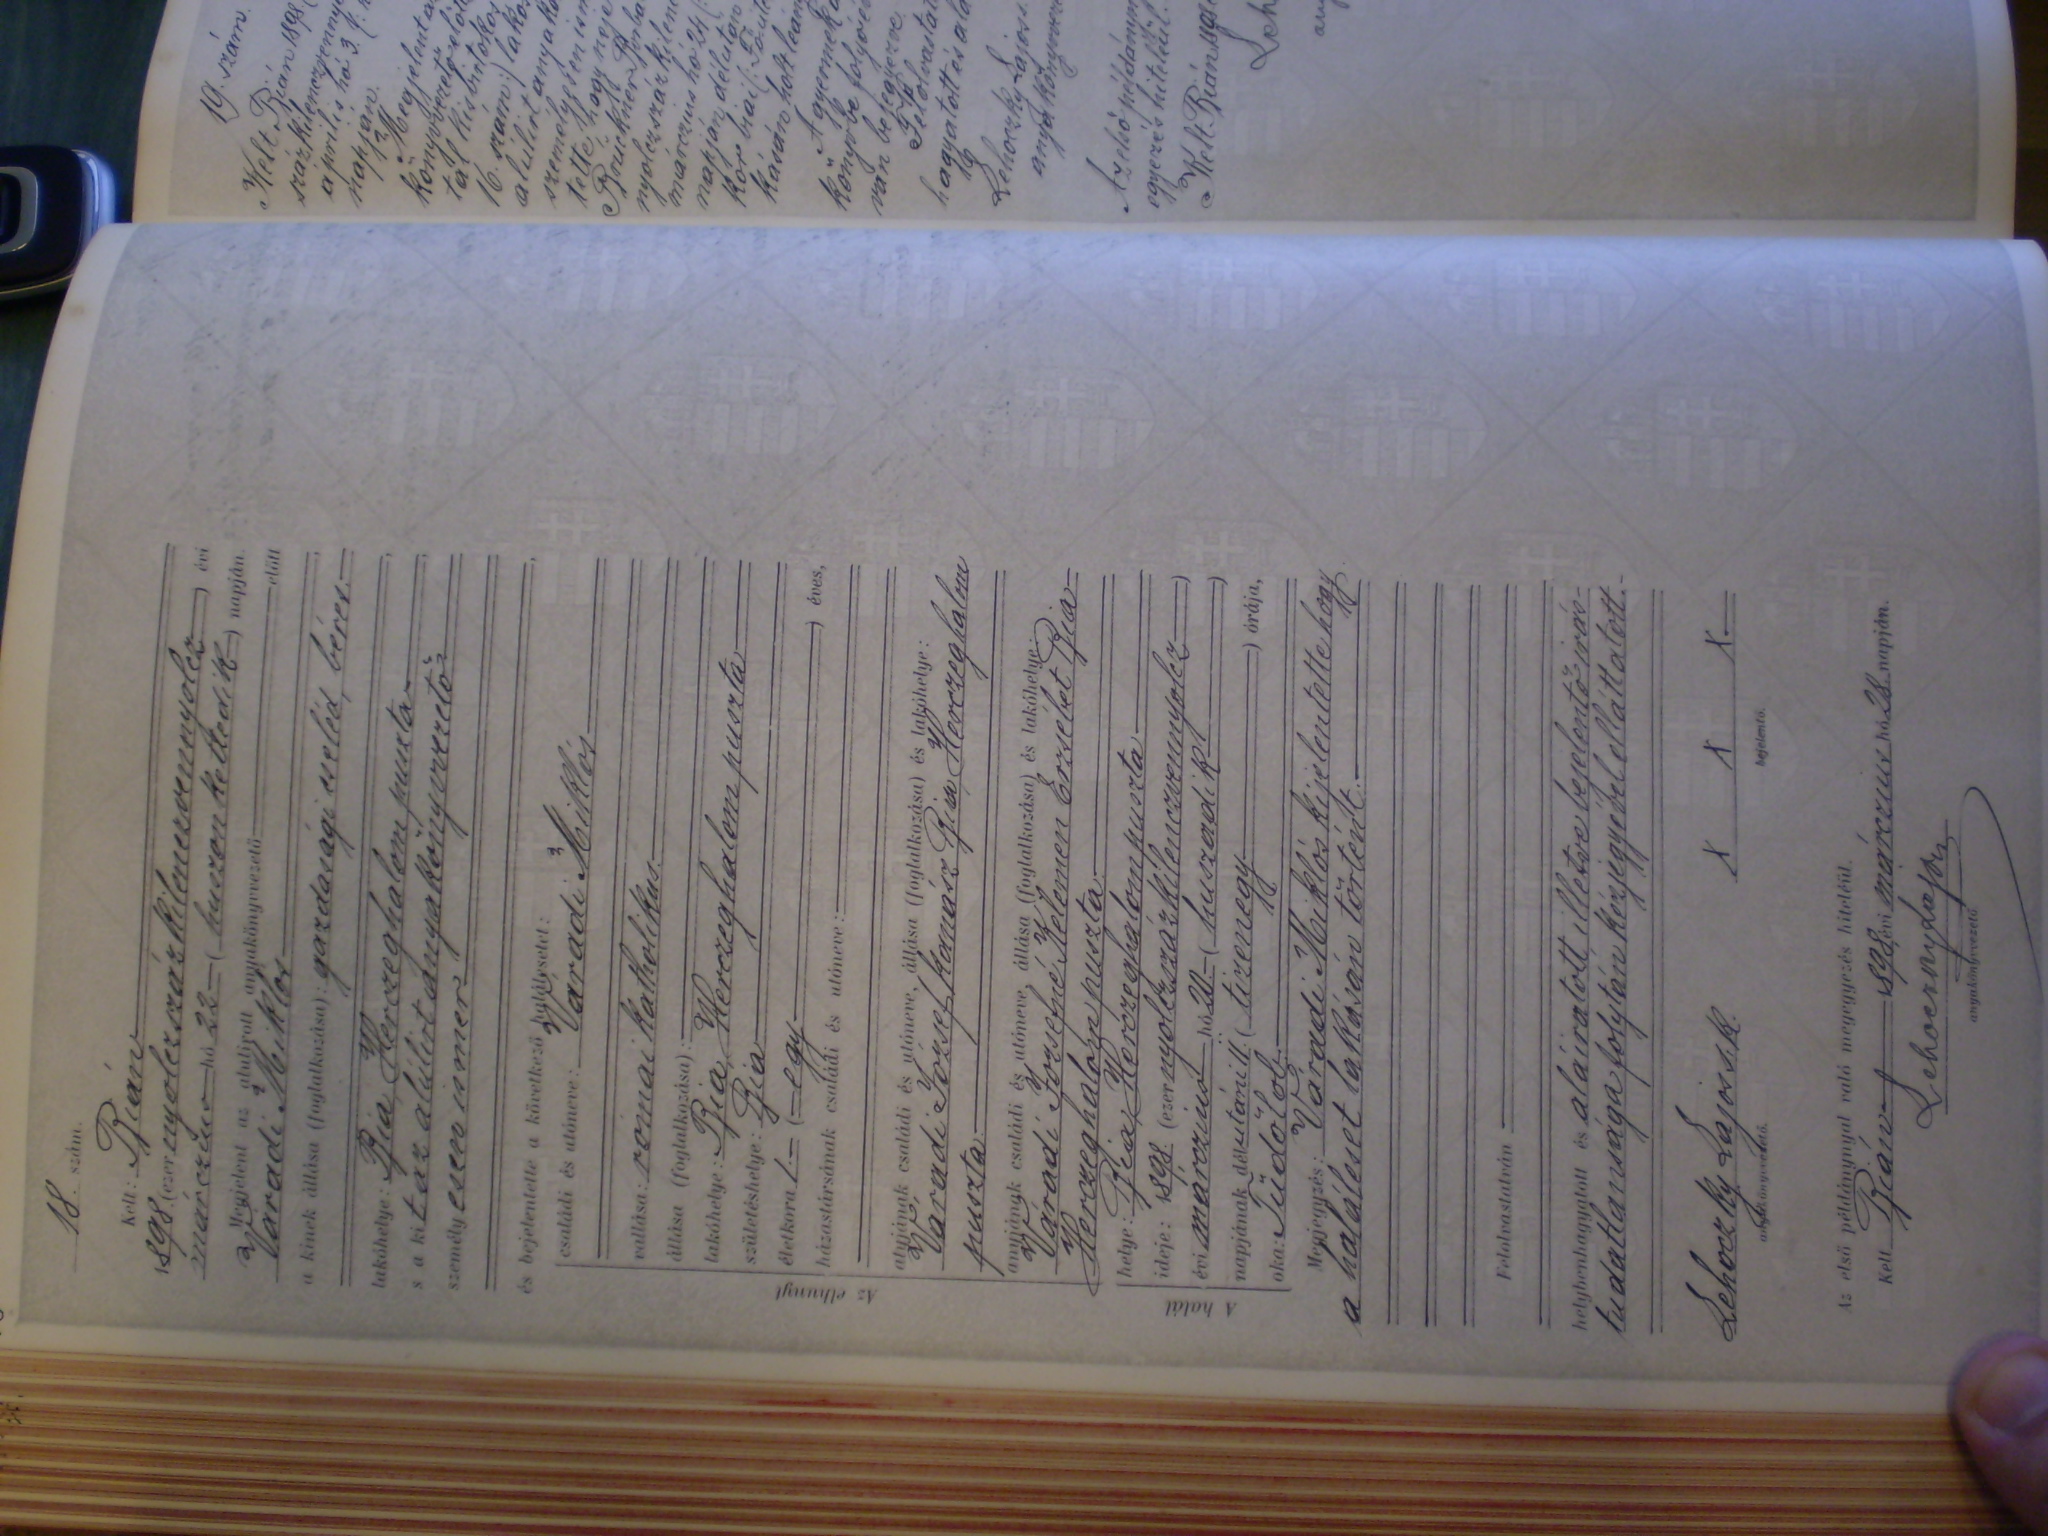 18. szám.
Kelt: Bián
1898. (ezer nyolczszázkilenczvennyolcz) évi
márczius hó 22 (huszonkettedik) napján.
Megjelent az alulírott anyakönyvezető előtt
Váradi Miklós
a kinek állása (foglalkozása): gazdasági cseléd, béres.
lakóhelye: Bia, Herczeghalom puszta
s a kit az alólirt anyakönyvvezető
személyesen ismer
és bejelentette a következő halálesetet:
Az elhunyt
családi és utóneve: Váradi Miklós
vallása: római katholikus.
állása (foglalkozása):
lakóhelye: Bia, Herczeghalom puszta
születéshelye: Bia
életkora 1. (egy) éves,
házastársának családi és utóneve:
atyjának családi és utóneve, állása (foglalkozása) és lakóhelye:
Váradi József Bia, Herczeghalom
puszta
anyjának családi és utóneve, állása (foglalkozása) és lakóhelye:
Váradi Józsefné Kelemen Erzsébet Bia
Herczeghalom puszta
A halál
helye: Bia, Herczeghalom puszta
ideje: 1898. (ezer nyolczszázkilenczvennyolcz)
évi márczius hó 20 (huszadik)
napjának délutáni 11. (tizenegy) órája,
oka: Tüdőlob.
Megjegyzés: Váradi Miklós kijelentette hogy
a haláleset lakásán történt.
Felolvastatván
helybenhagyatott és aláiratott illetve bejelentő irás-
tudatlansága folytán kézjegyével elláttatott.
Lehoczky Lajos s. k. x x x
anyakönyvezető. bejelentő.
Az első példánynyal való megegyezés hiteléül.
Kelt Bián 1898 évi márczius hó 28 napján.
Lehoczky Lajos
anyakönyvezető
19. szám.
Kelt Bián 1898
százkilenczvenny
április hó 3.
napján.
Megjelent a
könyvvezető előtt
16. szám) lakos
alulirt anyakö
személyesen ism
tette, hogy neje
nyolczszázkilen
márczius hó 24
napján délután
kor biai
kásán holtan
A gyermek a
könyvbe folyó
ván bejegyezve.
Felolvastat
hagyatott és alá
Lehoczky Lajos s.
anyakönyvvezető
Az első példányn
egyezés hiteléül.
Kelt Bián 1898
Leh
any